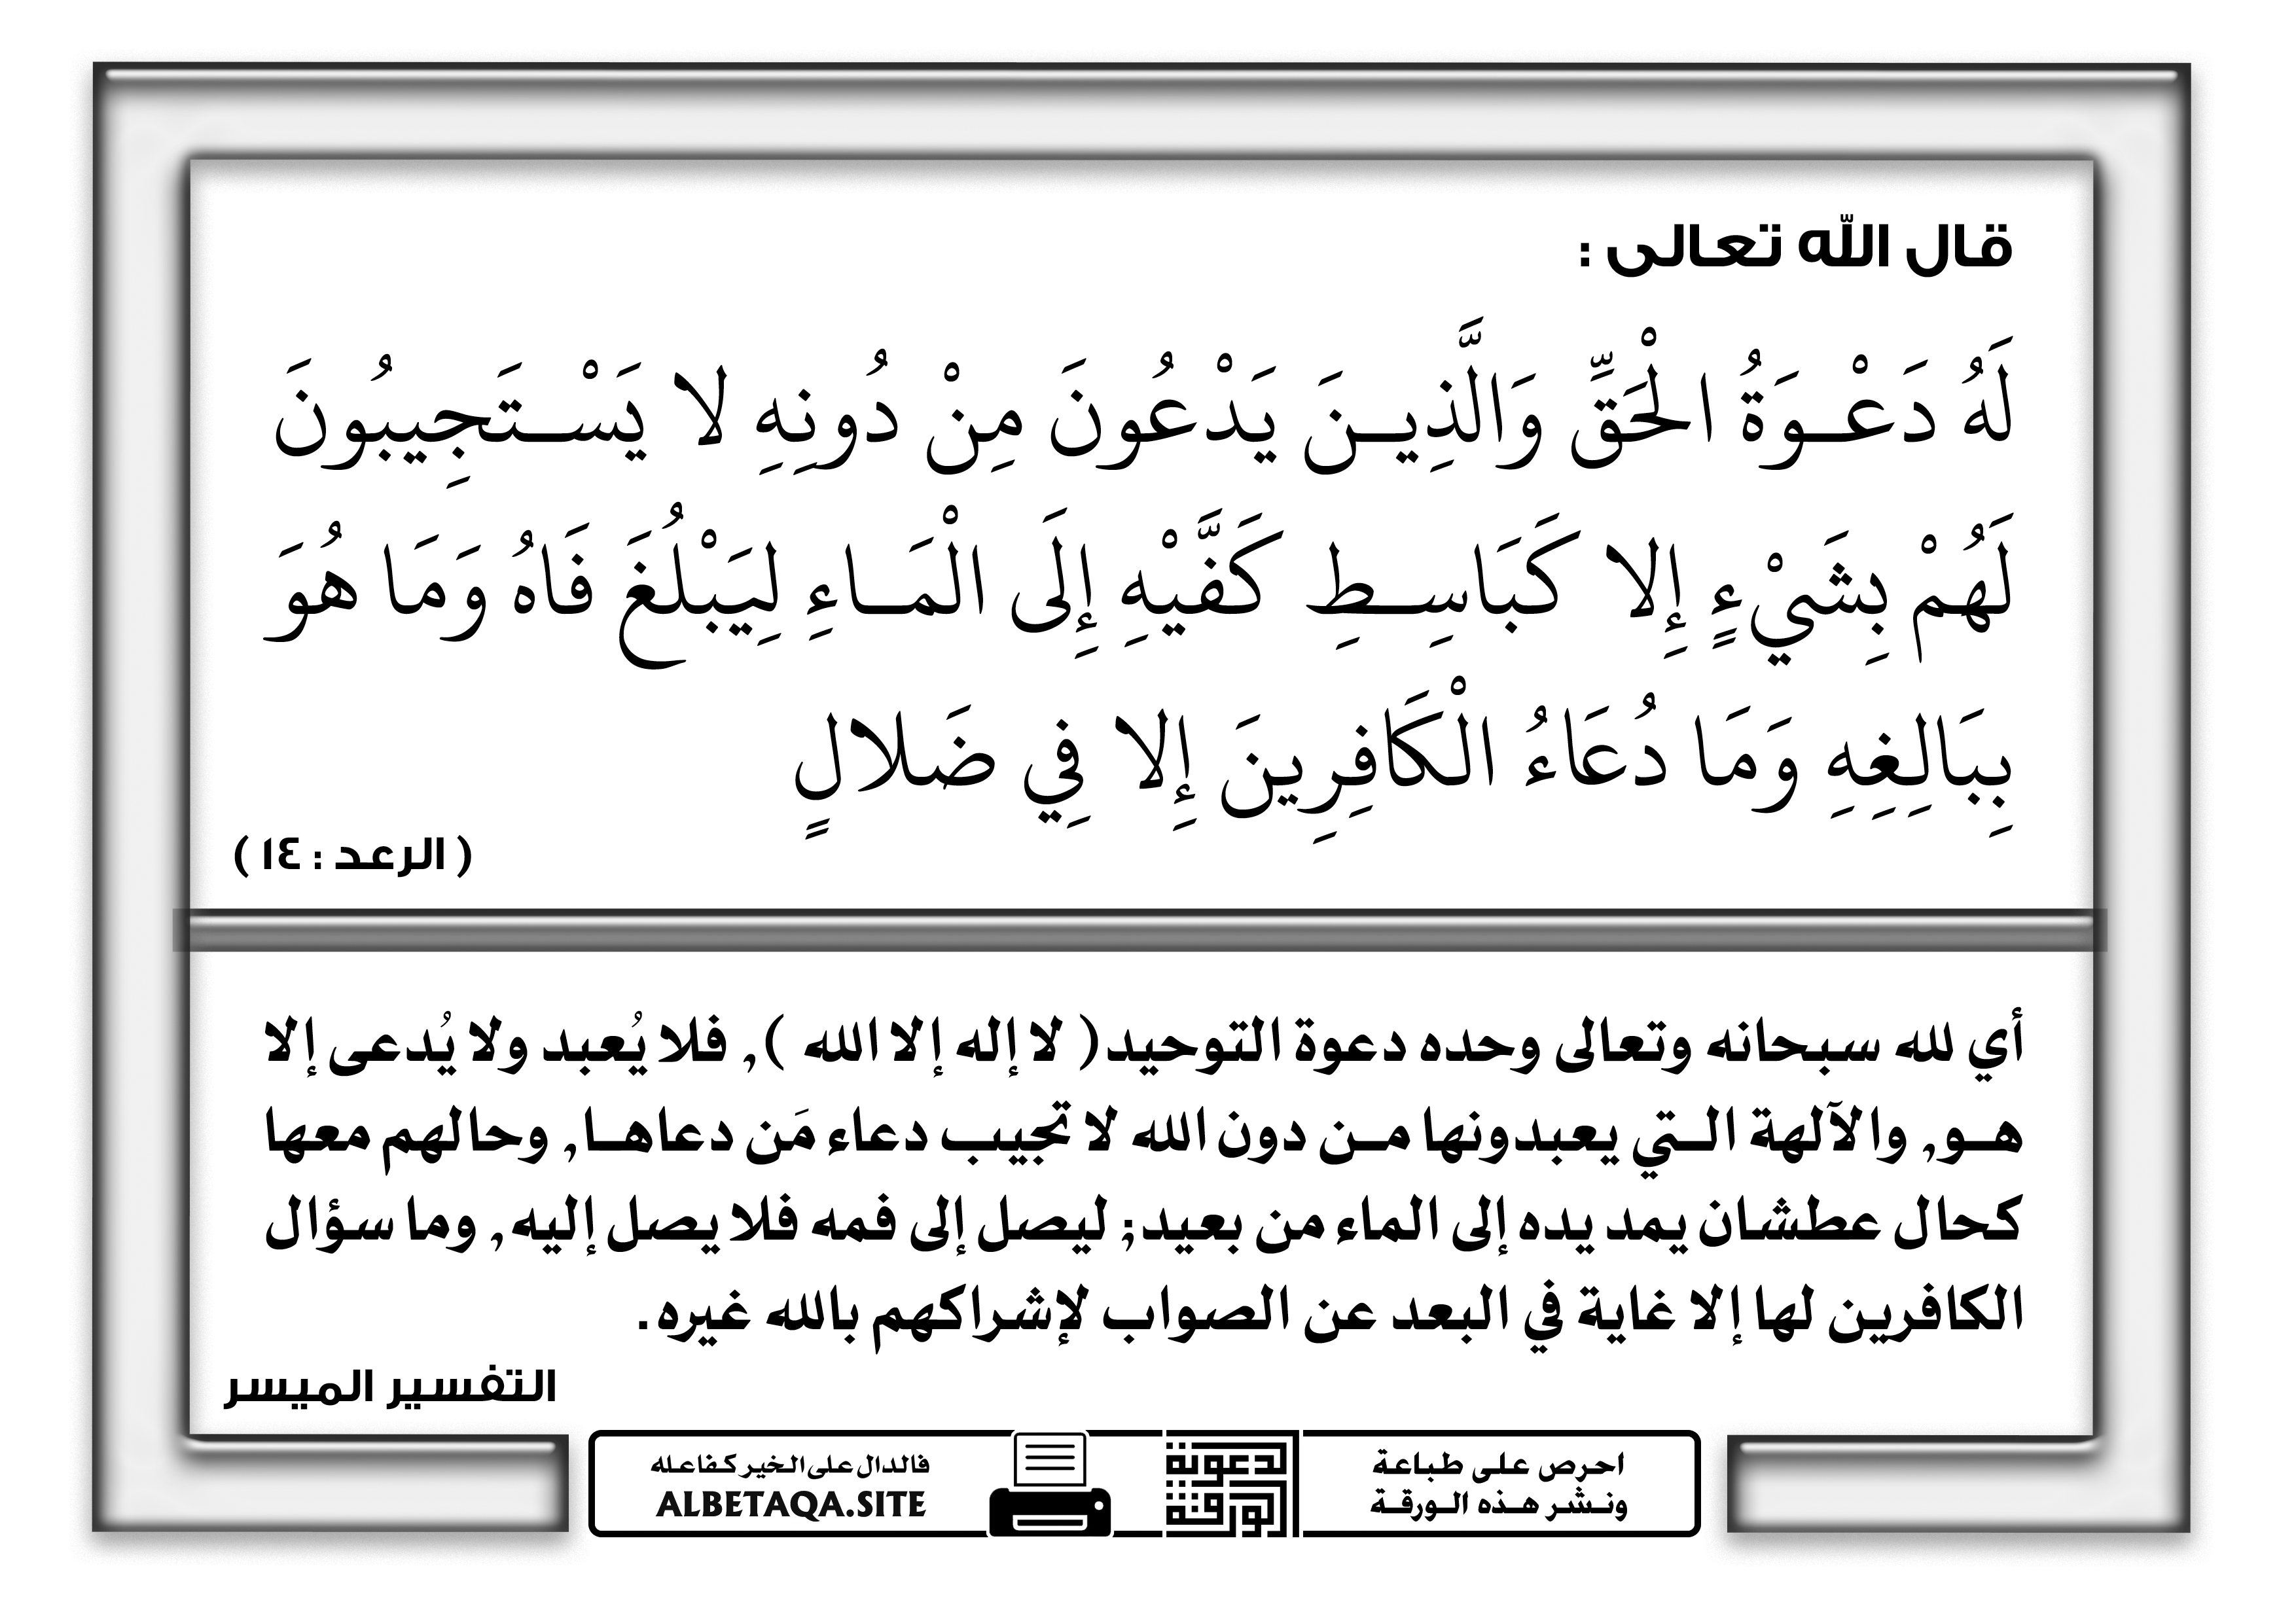 قال الله تعالى :
لَهُ دَعْـوَةُ الْحَقِّ وَالَّذِيـنَ يَدْعُونَ مِنْ دُونِهِ لا يَسْـتَجِيبُونَ
لَهُمْ بِشَيْءٍ إِلا كَبَاسِـطِ كَفَّيْهِ إِلَى الْمَـاءِ لِيَبْلُغَ فَاهُ وَمَا هُوَ
بِبَالِغِهِ وَمَا دُعَاءُ الْكَافِرِينَ إِلا فِي ضَلالٍ
( الرعد : ١٤ )
أي لله سبحانه وتعالى وحده دعوة التوحيد( لا إله إلا الله ), فلا يُعبد ولا يُدعى إلا
هـو, والآلهة الـتي يعبدونها مـن دون الله لا تجيب دعاء مَن دعاهـا, وحالهم معها
كحال عطشان يمد يده إلى الماء من بعيد; ليصل إلى فمه فلا يصل إليه, وما سؤال
الكافرين لها إلا غاية في البعد عن الصواب لإشراكهم بالله غيره.
التفسير الميسر
احرص على طباعة
ونـشـر هـذه الـورقـة
الدعوية
الورقة
فالدال على الخير كفاعله
ALBETAQA.SITE